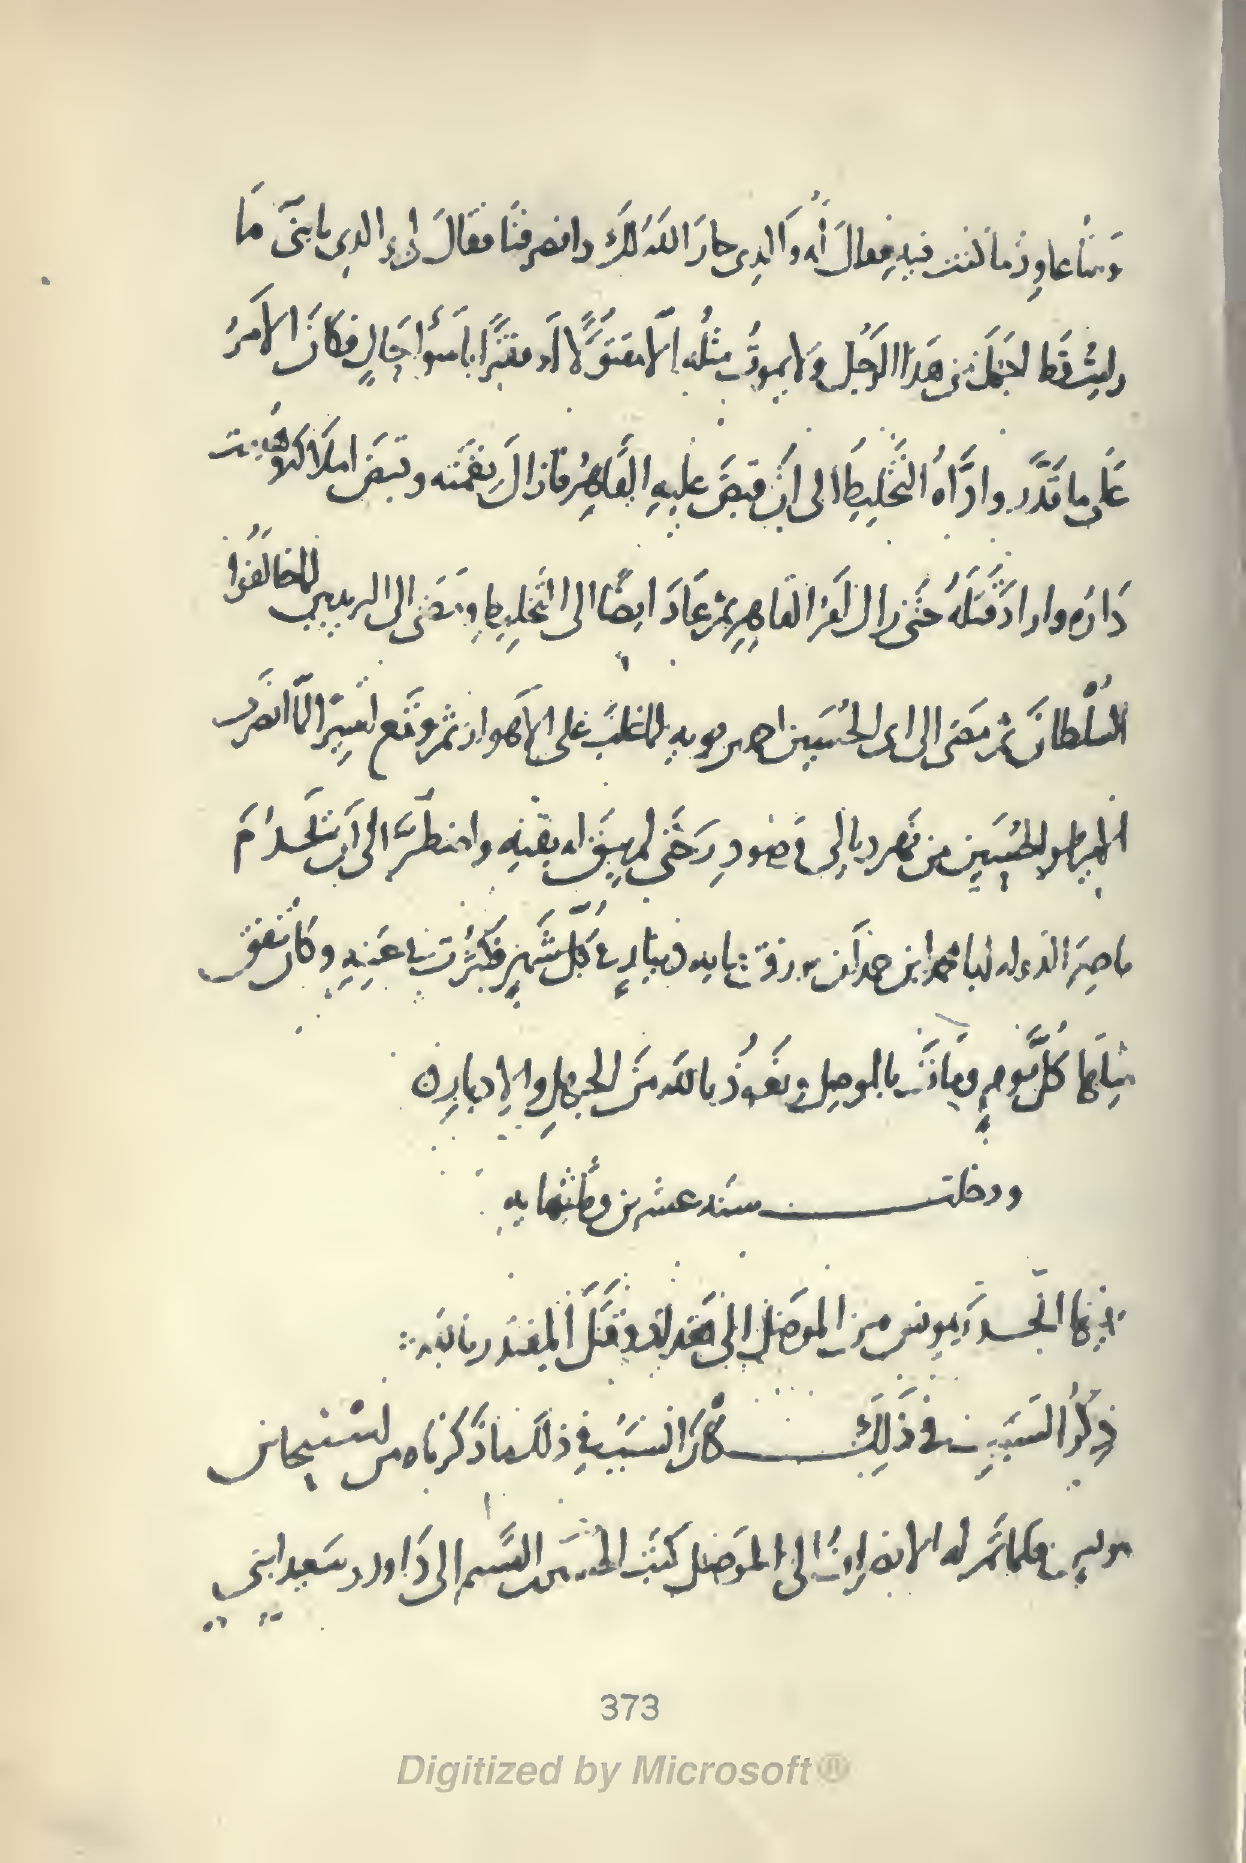 وشاء عاود ما كنت فيه فقال له والدي خار الله لك وانصرفنا فقال لي والدي يا بني ما
رايت قط اجهل من هذا الرجل ولا يموت مثله الا مقتولا او فقيرا باسوا حال فكان الامر
على ما قدر واداه التخليط الى ان قبض عليه القاهر فازال نعمته وقبض املاكه وهدمت
داره واراد قتله حتى زال امر القاهر ثم عاد ايضا الى التخليط ومضى الى البريدي لما خالفوا
السلطان ثم مضى الى ابي الحسين احمد بن بويه لما غلب على الاهواز ثم وقع اسيرا لما انصرف
الامير ابو الحسين من نهر ديالى فصودر حتى لم يبق له بقية واضطر الى ان يخدم
ناصر الدوله ابا محمد ابن حمدان برزق مايه دينار في كل شهر فكثرت في عينه وكان ينفق
مثلها كل يوم ومات بالموصل ونعوذ بالله من الجهل والادبار
ودخلت سنه عشرين وثلثمايه
فيها انحدر مونس من الموصل الى بغداد وقتل المقتدر بالله
ذكر السبب في ذلك كان السبب في ذلك ما ذكرناه من استيحاش
مونس فلما تم له الانصراف الى الموصل كتب الحسين بن القسم الى داود وسعيد ابني
373
Digitized by Microsoft®